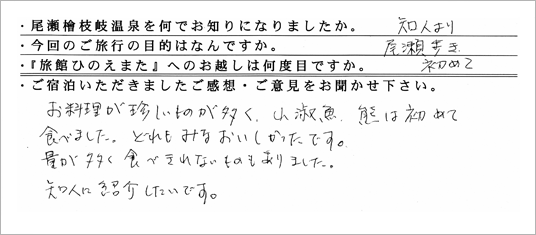 ・尾瀬檜枝岐温泉を何でお知りになりましたか。 知人より
・今回のご旅行の目的はなんですか。 尾瀬歩き
・『旅館ひのえまた』へのお越しは何度目ですか。 初めて
・ご宿泊いただきましたご感想・ご意見をお聞かせ下さい。
お料理が珍しいものが多く、山淑魚、熊は初めて
食べました。どれもみなおいしかったです。
量が多く食べきれないものもありました。
知人に紹介したいです。